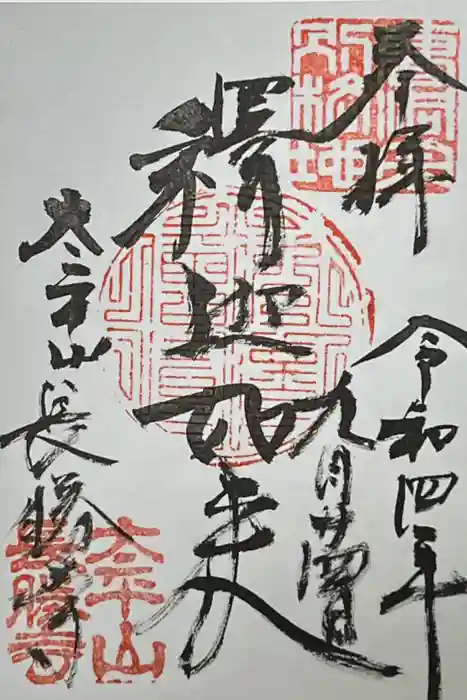 奉拝
令和四年
九月廿
釋迦如来
太平山長勝寺
太平山
長勝寺